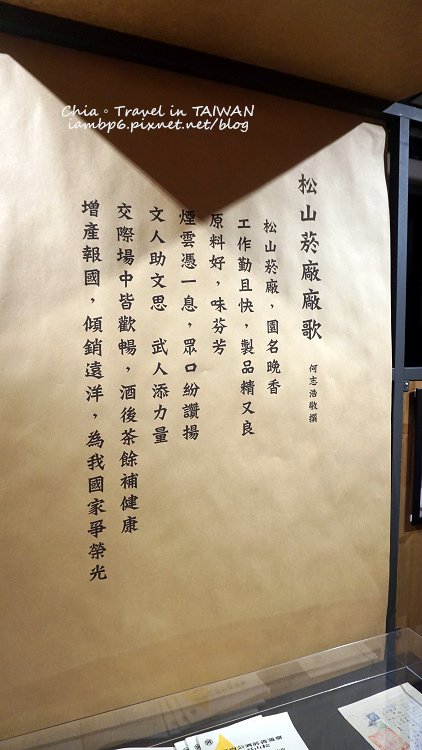 Chia。Travel in TAIWAN
iambp6.pixnet.net/blog
松山菸廠廠歌
何志浩敬撰
松山菸廠，園名晚香
工作勤且快，製品精又良
原料好，味芬芳
煙雲憑一息，眾口紛讚揚
文人助文思　武人添力量
交際場中皆歡暢，酒後茶餘補健康
增產報國，傾銷遠洋，為我國家爭榮光